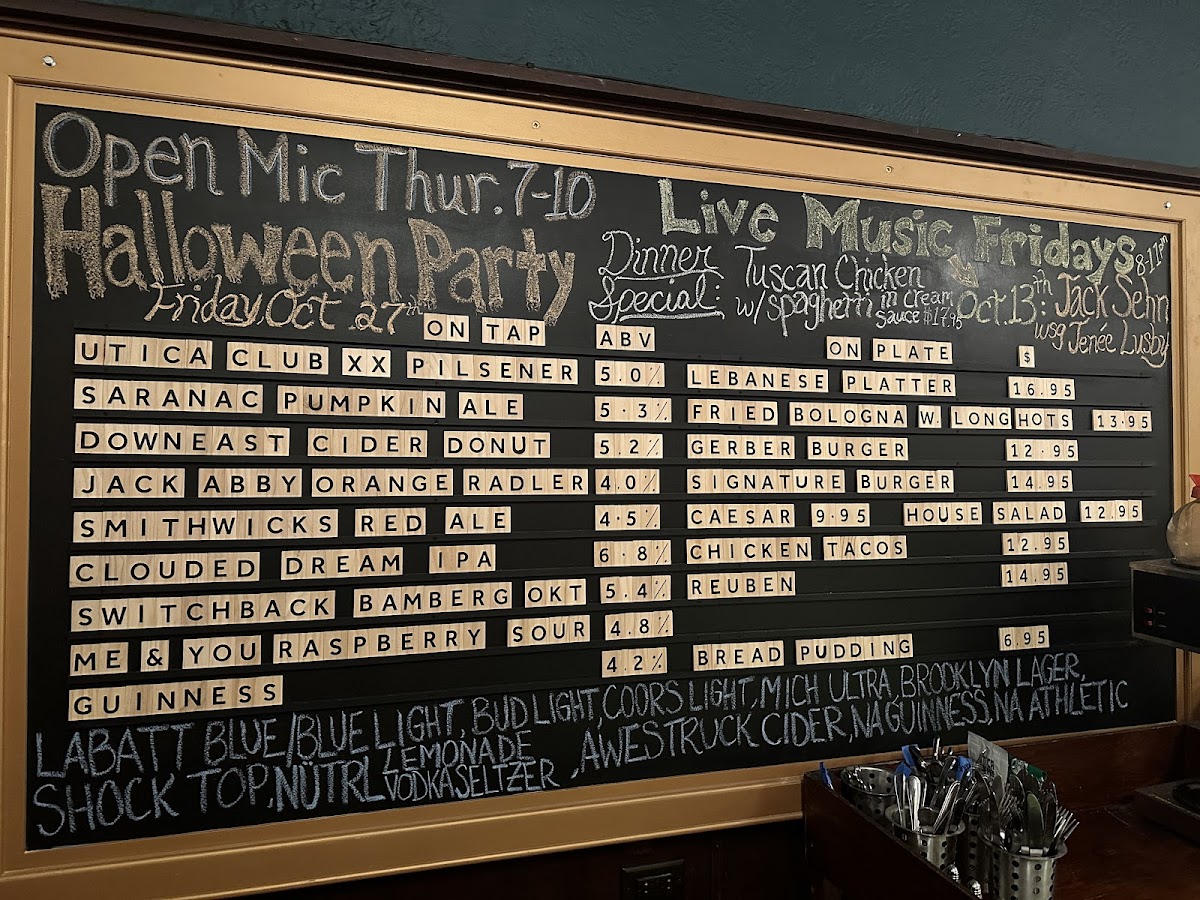 Open Mic Thur. 7-10
Halloween Party
Friday, Oct. 27th
Live Music Fridays 8-11pm
Oct. 13th: Jack Sehn
wsg Jenée Lusby
Dinner Special: Tuscan Chicken
w/ spaghetti in cream sauce $17.95
ON TAP ABV
UTICA CLUB XX PILSENER 5.0%
SARANAC PUMPKIN ALE 5.3%
DOWNEAST CIDER DONUT 5.2%
JACK ABBY ORANGE RADLER 4.0%
SMITHWICKS RED ALE 4.5%
CLOUDED DREAM IPA 6.8%
SWITCHBACK BAMBERG OKT 5.4%
ME & YOU RASPBERRY SOUR 4.8%
GUINNESS 4.2%
ON PLATE $
LEBANESE PLATTER 16.95
FRIED BOLOGNA W. LONG HOTS 13.95
GERBER BURGER 12.95
SIGNATURE BURGER 14.95
CAESAR 9.95 HOUSE SALAD 12.95
CHICKEN TACOS 12.95
REUBEN 14.95
BREAD PUDDING 6.95
LABATT BLUE/BLUE LIGHT, BUD LIGHT, COORS LIGHT, MICH ULTRA, BROOKLYN LAGER,
SHOCK TOP, NÜTRL LEMONADE VODKA SELTZER, AWESTRUCK CIDER, NA GUINNESS, NA ATHLETIC